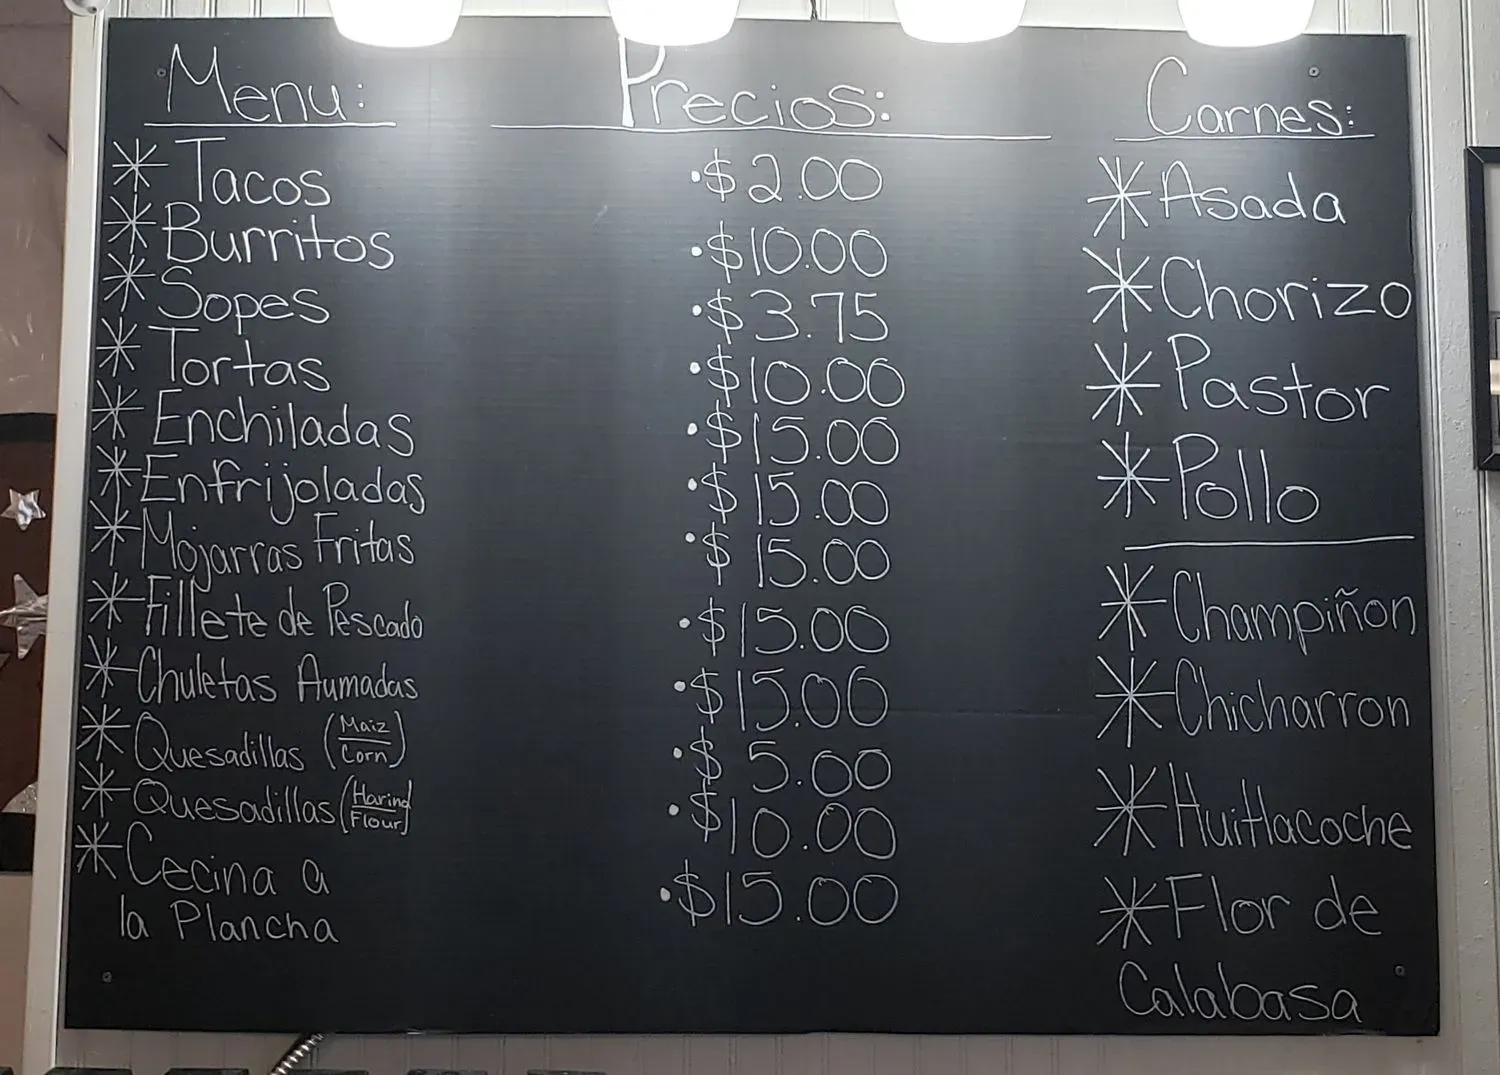 Menu:
Precios:
Carnes:
Tacos
Burritos
Sopes
Tortas
Enchiladas
Enfrijoladas
Mojarras Fritas
Fillete de Pescado
Chuletas Aumadas
Quesadillas (Maiz/Corn)
Quesadillas (Harina/Flour)
Cecina a
la Plancha
$2.00
$10.00
$3.75
$10.00
$15.00
$15.00
$15.00
$15.00
$15.00
$5.00
$10.00
$15.00
Asada
Chorizo
Pastor
Pollo
Champiñon
Chicharron
Huitlacoche
Flor de
Calabasa